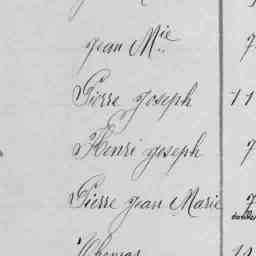 Jean Mie
Pierre Joseph 11
Henri Joseph
Pierre Jean Marie
Thomas